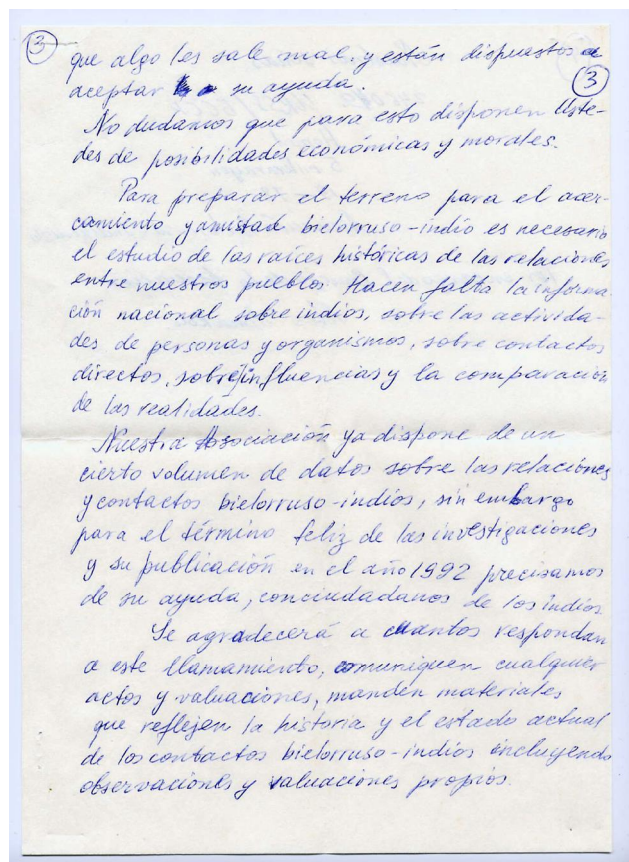 3
que algo les sale mal, y están dispuestos a
aceptar su ayuda.
3
No dudamos que para esto disponen Uste-
des de posibilidades económicas y morales.
Para preparar el terreno para el acer-
camiento y amistad bielorruso-indio es necesario
el estudio de las raíces históricas de las relaciones
entre nuestros pueblos. Hacen falta la informa-
ción nacional sobre indios, sobre las activida-
des de personas y organismos, sobre contactos
directos, sobre influencias y la comparación
de las realidades.
Nuestra Asociación ya dispone de un
cierto volumen de datos sobre las relaciones
y contactos bielorruso-indios, sin embargo
para el término feliz de las investigaciones
y su publicación en el año 1992 precisamos
de su ayuda, conciudadanos de los indios.
Se agradecerá a cuantos respondan
a este llamamiento, comuniquen cualquier
actos y valuaciones, manden materiales
que reflejen la historia y el estado actual
de los contactos bielorruso-indios incluyendo
observaciones y valuaciones propios.